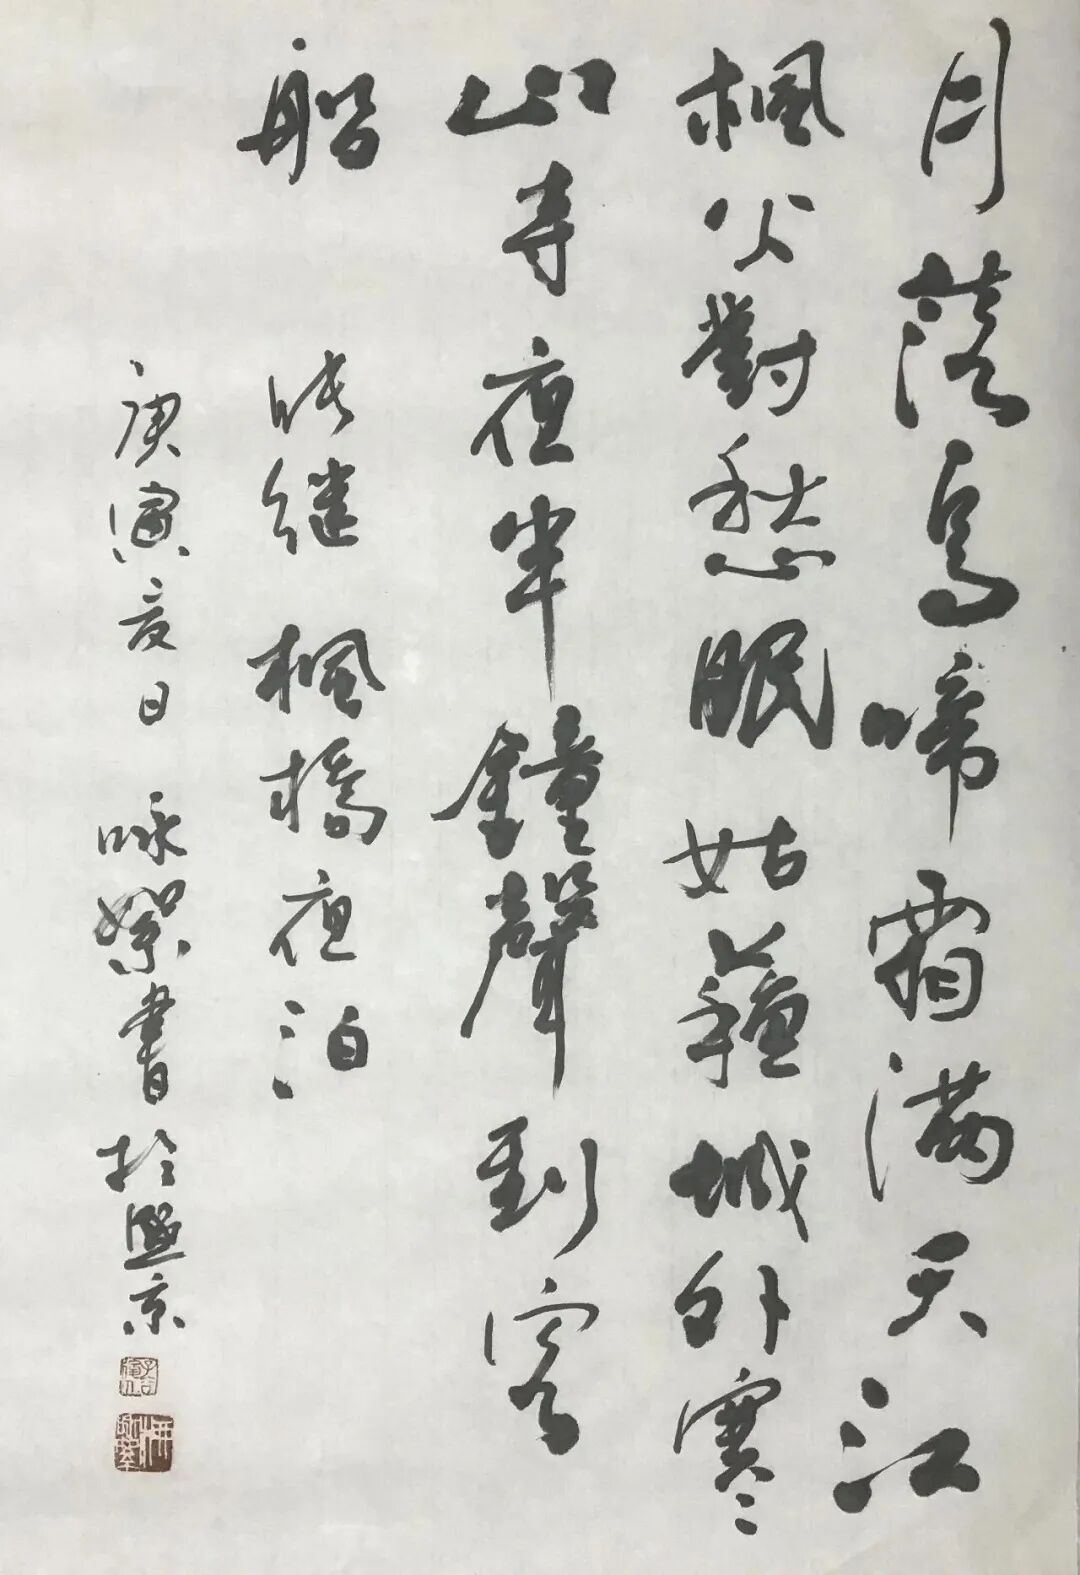 月落烏啼霜满天江
楓火對愁眠姑蘇城外寒
山寺夜半鐘聲到客
船
張继 楓橋夜泊
庚寅夏日 咏絮書於京